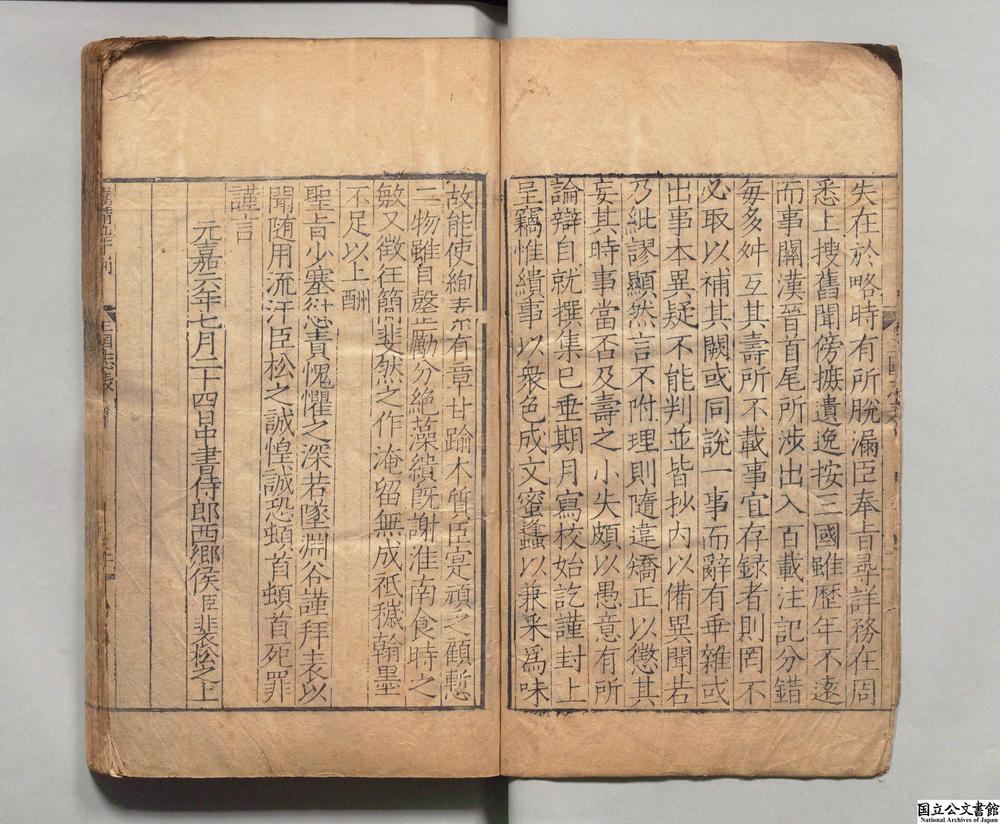 失在於略時有所脫漏臣奉旨尋詳務在周
悉上搜舊聞傍摭遺逸按三國雖歷年不遠
而事關漢晉首尾所涉出入百載注記分錯
每多舛互其壽所不載事宜存録者則罔不
必取以補其闕或同說一事而辭有乖雜或
出事本異疑不能判並皆抄內以備異聞若
乃紕謬顯然言不附理則隨違矯正以懲其
妄其時事當否及壽之小失頗以愚意有所
論辯自就撰集巳垂期月寫校始訖謹封上
呈竊惟繢事以衆色成文蜜蠭以兼采爲味
故能使絢素有章甘踰本質臣寔頑乏顧慙
二物雖自罄勵分絶藻繢旣謝淮南食時之
敏又微狂簡斐然之作淹留無成祇穢翰墨
不足以上酬
聖旨少塞愆責愧懼之深若墜淵谷謹拜表以
聞隨用流汗臣松之誠惶誠恐頓首頓首死罪
謹言
元嘉六年七月二十四日中書侍郎西鄉侯臣裴松之上
國立公文書館
National Archives of Japan